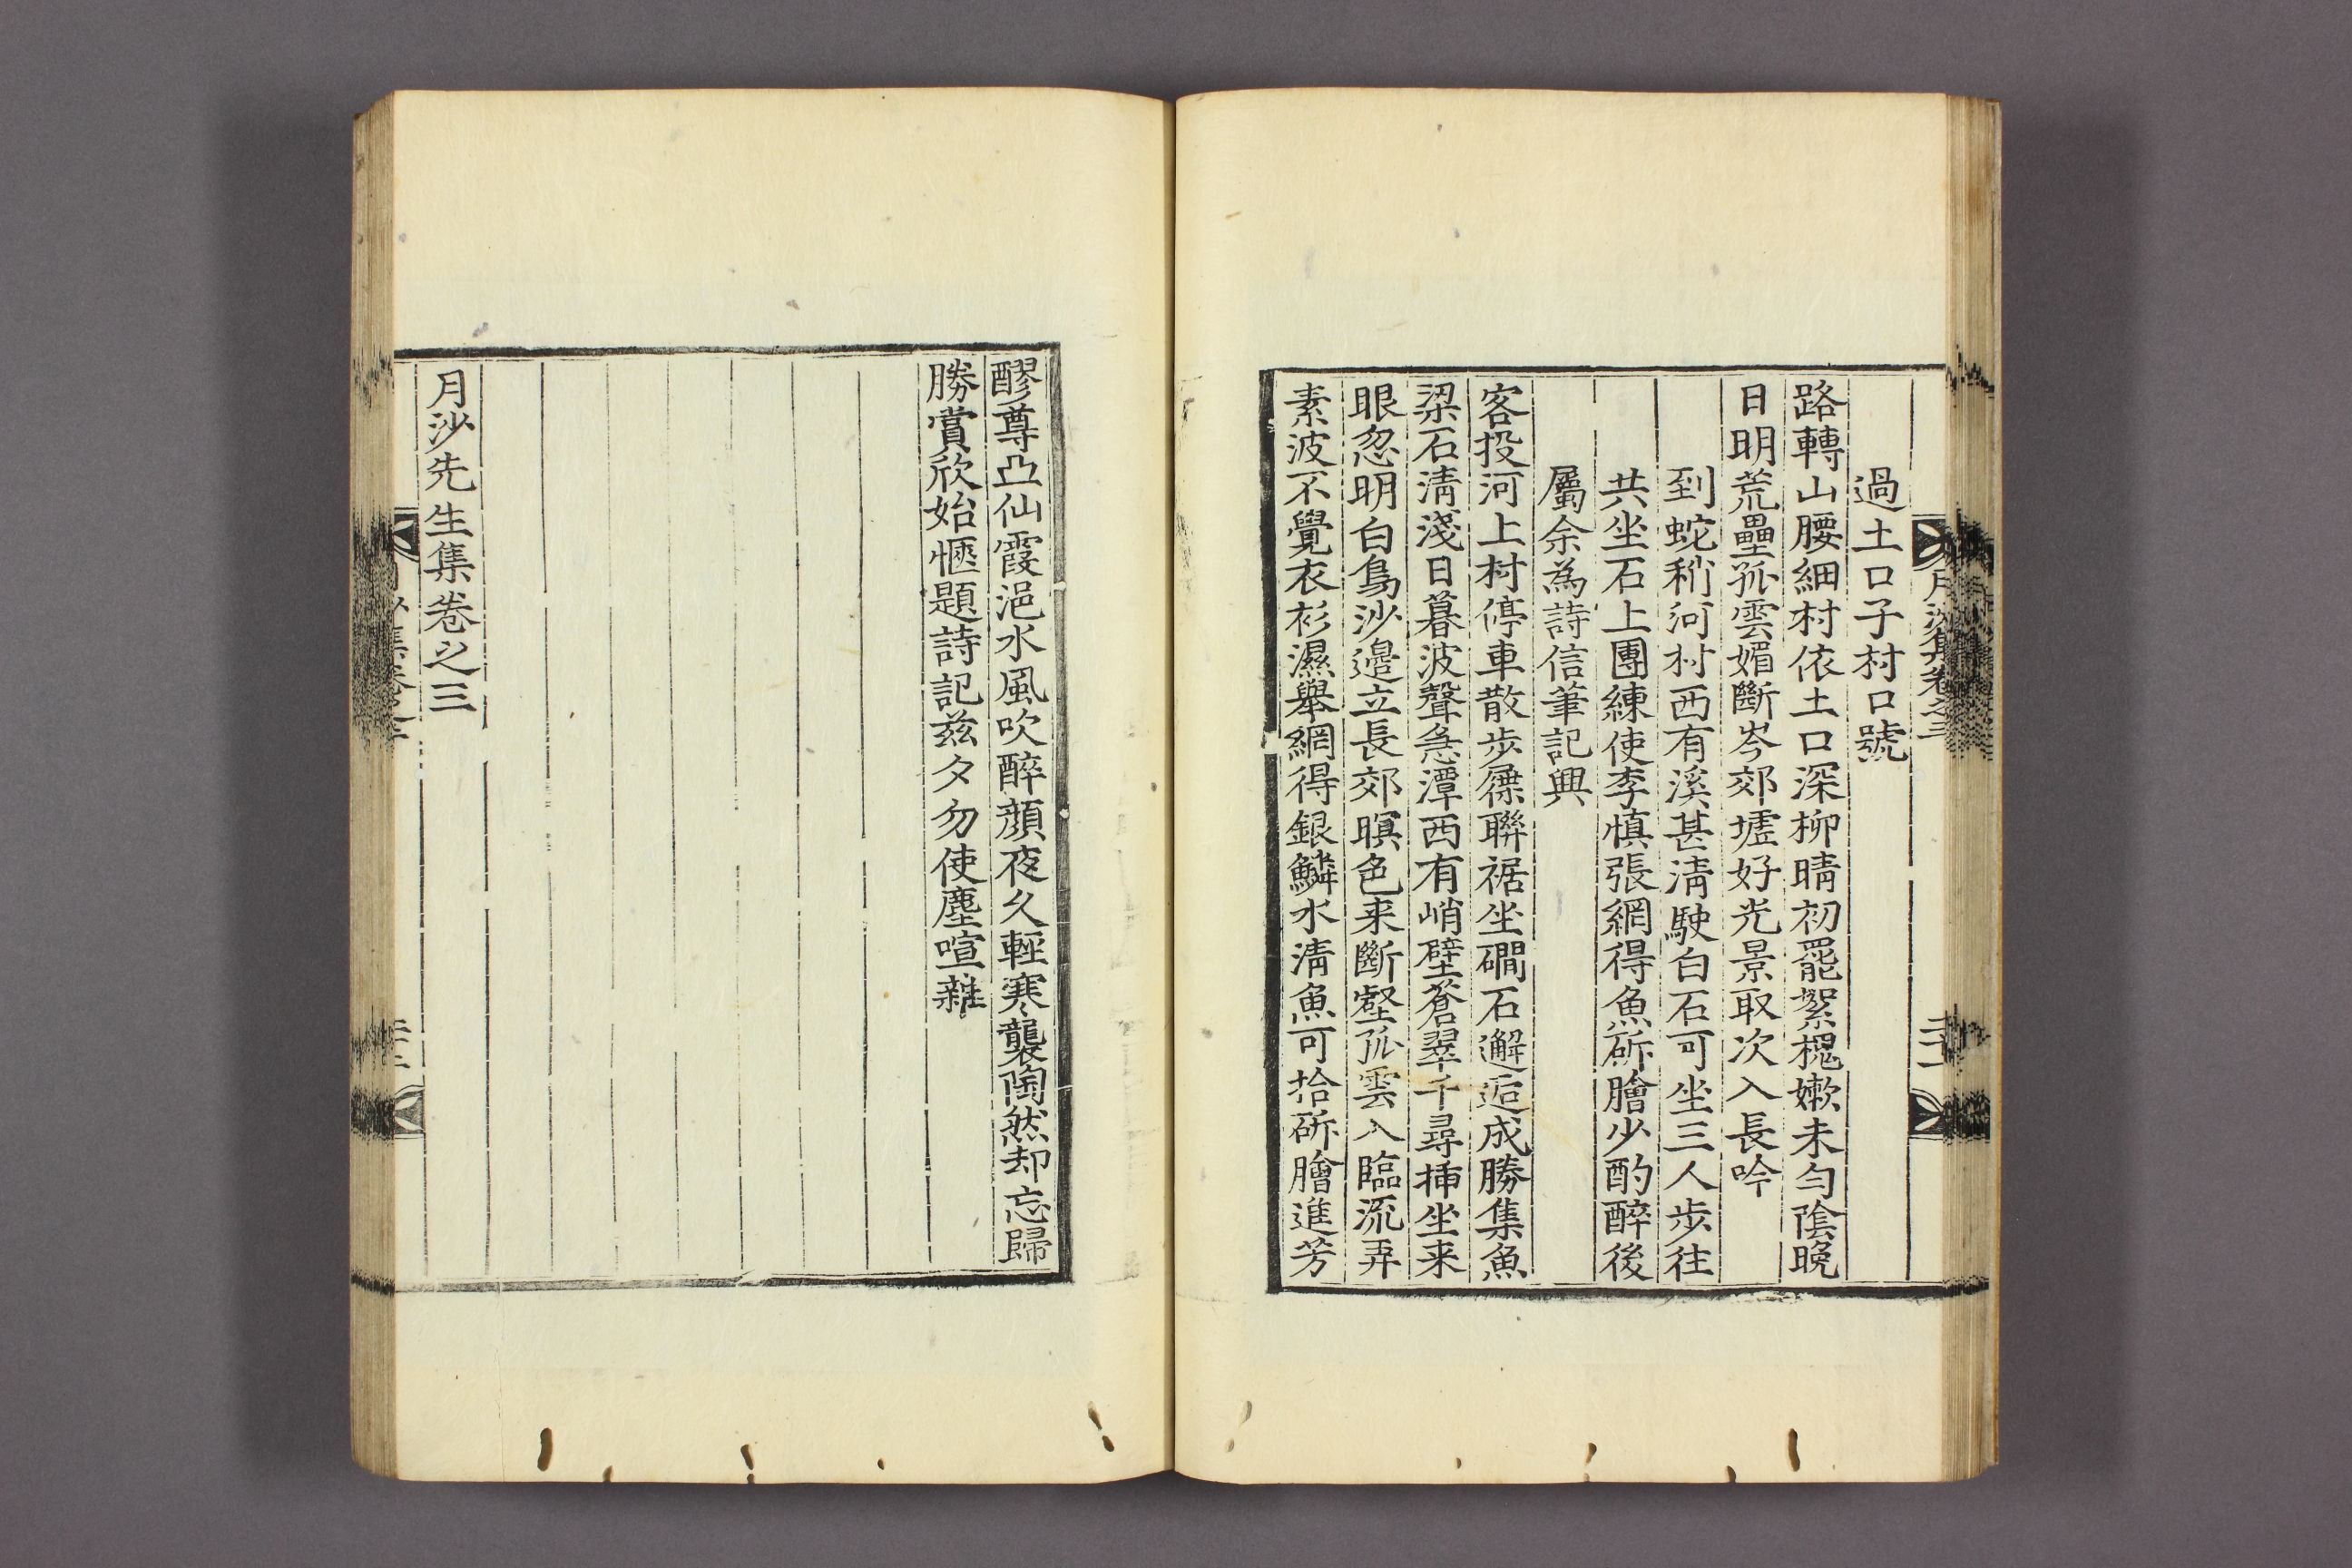 月沙集卷之三
過土口子村口號
路轉山腰細村依土口深柳晴初罷絮槐嫰未勻陰晚
日明荒壘孤雲媚斷岑郊墟好光景取次入長吟
到蛇稍河村西有溪甚淸駛白石可坐三人步往
共坐石上團練使李愼張網得魚斫膾少酌醉後
屬余爲詩信筆記興
客投河上村停車散步屧聯裾坐磵石邂逅成勝集魚
梁石淸淺日暮波聲急潭西有峭壁蒼翠千尋揷坐来
眼忽明白鳥沙邊立長郊暝色来斷壑孤雲入臨流弄
素波不覺衣衫濕擧網得銀鱗水淸魚可拾斫膾進芳
醪尊凸仙霞浥水風吹醉顔夜久輕寒襲陶然却忘歸
勝賞欣始愜題詩記兹夕勿使塵喧雜
月沙先生集卷之三